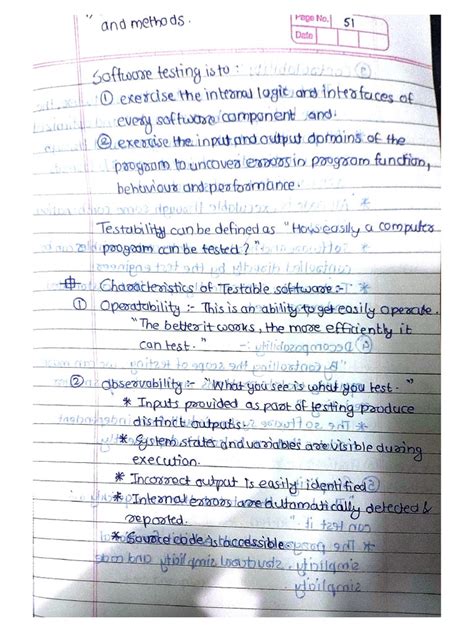 and methods.
Page No. 51
Date
Software testing is to :
① exercise the internal logic and interfaces of
every software component and.
② exercise the input and output domains of the
program to uncover errors in program function,
behaviour and performance.
Testability can be defined as "How easily a computer
program can be tested?"
Characteristics of Testable software :-
① Operatability :- This is an ability to get easily operate.
"The better it works, the more efficiently it
can test."
② Observability :- "What you see is what you test."
* Inputs provided as part of testing produce
distinct outputs.
* System states and variables are visible during
execution.
* Incorrect output is easily identified
* Internal errors are automatically detected &
reported.
* Source code is accessible